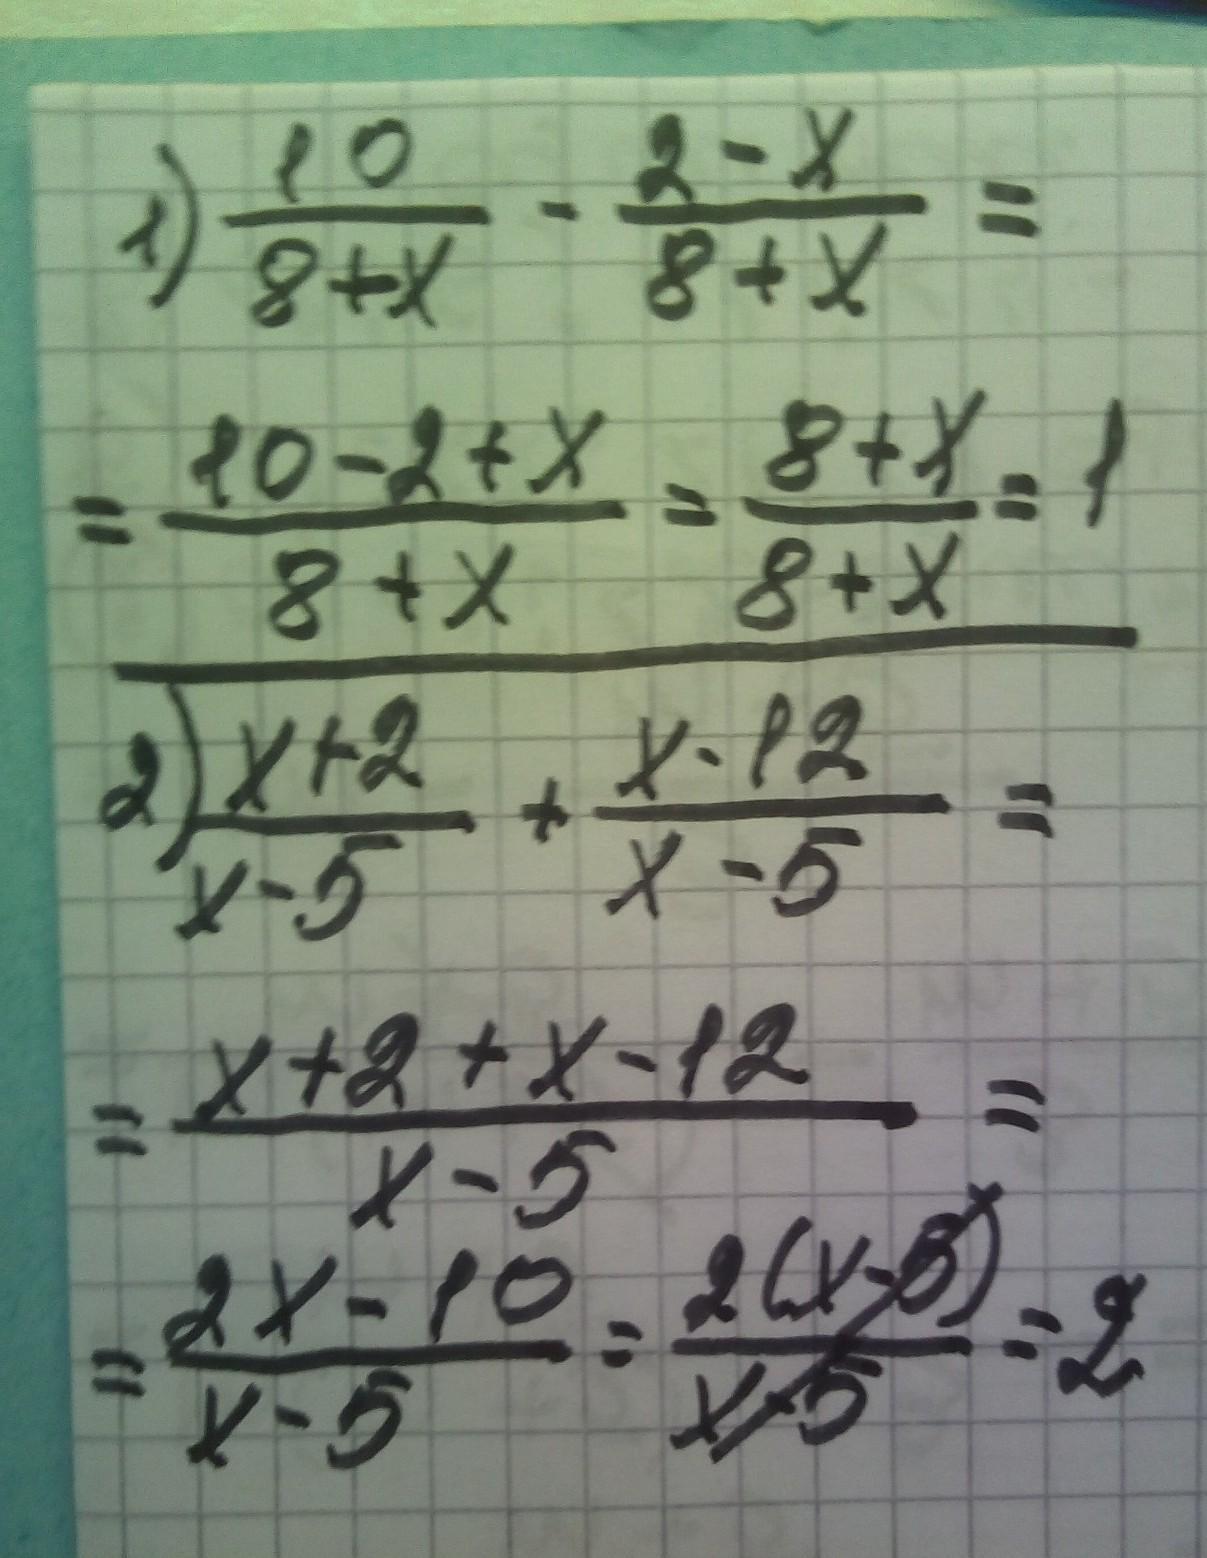 1) 10/(8+x) - (2-x)/(8+x) =
= (10-2+x)/(8+x) = (8+x)/(8+x) = 1
2) (x+2)/(x-5) + (x-12)/(x-5) =
= (x+2+x-12)/(x-5) =
= (2x-10)/(x-5) = 2(x-5)/(x-5) = 2